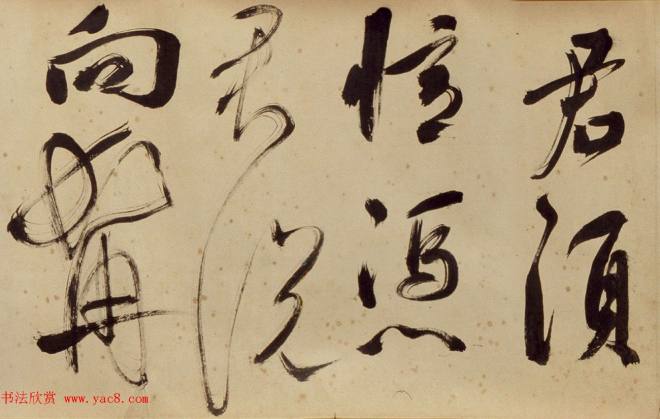 君須
憶憑
君說
向髯
书法欣赏 www.yac8.com